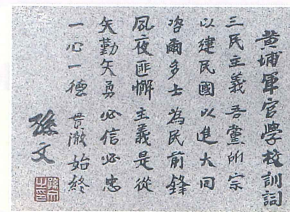 黃埔軍官學校訓詞
三民主義 吾黨所宗
以建民國 以進大同
咨爾多士 為民前鋒
夙夜匪懈 主義是從
矢勤矢勇 必信必忠
一心一德 貫徹始終
孫文
孫文之印